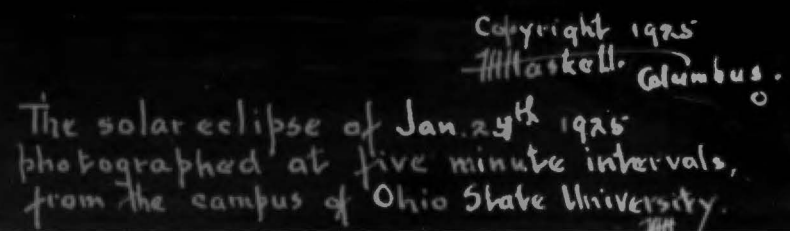 Copyright 1925
Haskell. Columbus. O
The solar eclipse of Jan. 24th 1925
photographed at five minute intervals,
from the campus of Ohio State University.